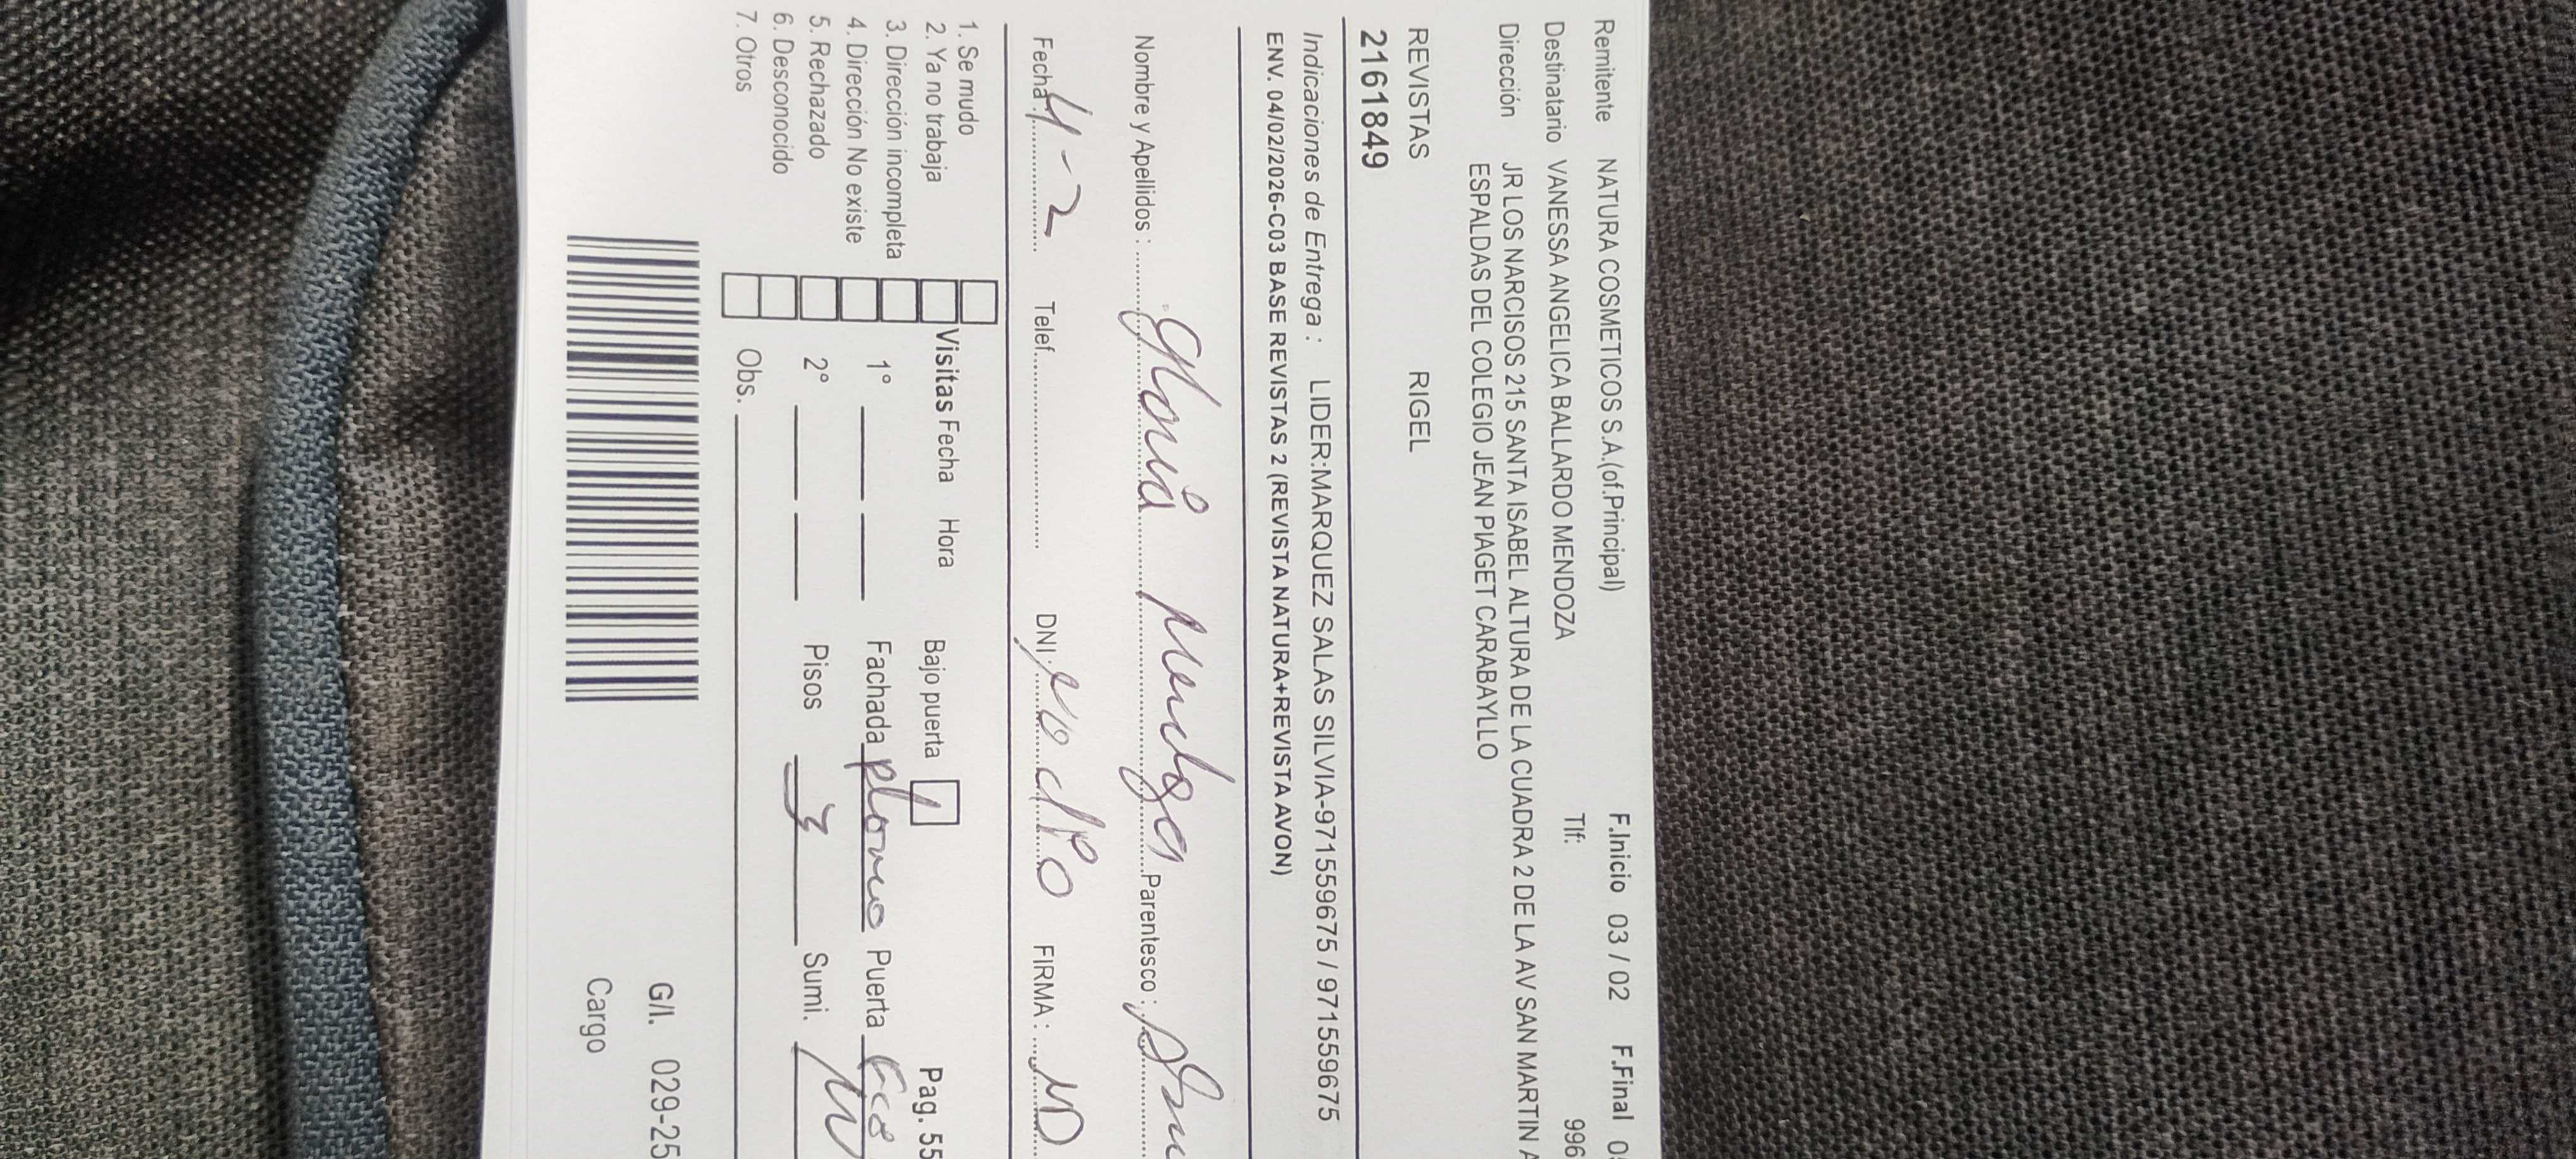 Remitente NATURA COSMETICOS S.A.(of.Principal) F.Inicio 03 / 02 F.Final 0
Destinatario VANESSA ANGELICA BALLARDO MENDOZA Tlf: 996
Dirección JR LOS NARCISOS 215 SANTA ISABEL ALTURA DE LA CUADRA 2 DE LA AV SAN MARTIN A
ESPALDAS DEL COLEGIO JEAN PIAGET CARABAYLLO
REVISTAS RIGEL
2161849
Indicaciones de Entrega : LIDER:MARQUEZ SALAS SILVIA-971559675 / 971559675
ENV. 04/02/2026-C03 BASE REVISTAS 2 (REVISTA NATURA+REVISTA AVON)
Nombre y Apellidos : Gloria Parentesco :
Fecha 4-2 Telef. DNI. FIRMA :
1. Se mudo
2. Ya no trabaja Visitas Fecha Hora Bajo puerta Pag. 55
3. Dirección incompleta 1° Fachada plomo Puerta
4. Dirección No existe
5. Rechazado 2° Pisos 3 Sumi.
6. Desconocido
7. Otros Obs.
G/I. 029-25
Cargo